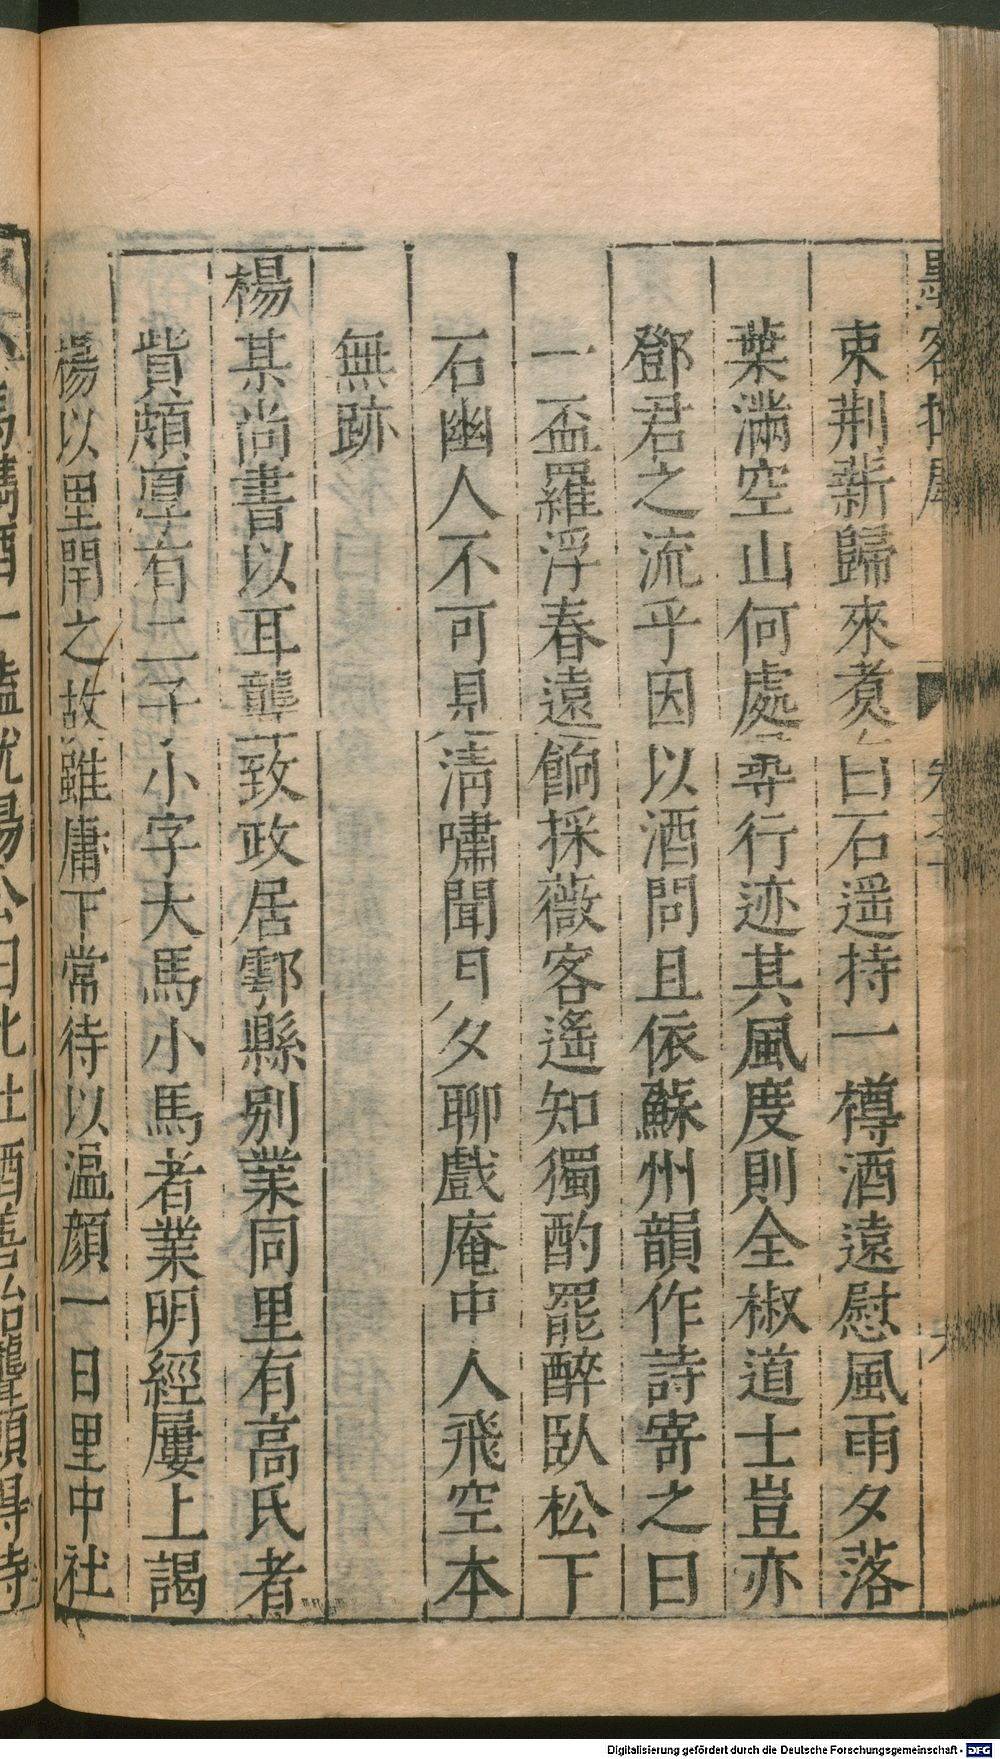 墨客揮犀
束荆薪歸來煑白石遥持一樽酒遠慰風雨夕落
葉滿空山何處尋行迹其風度則全椒道士豈亦
鄧君之流乎因以酒問且依蘇州韻作詩寄之曰
一盃羅浮春遠餉採薇客遙知獨酌罷醉臥松下
石幽人不可見清嘯聞日夕聊戲庵中人飛空本
無跡
楊某尚書以耳聾致政居鄠縣別業同里有高氏者
貲頗厚有二子小字大馬小馬者業明經屢上謁
楊以里閈之故雖庸下常待以溫顔一日里中社
酒一榼就楊公曰此社酒善治聾願得侍
Digitalisierung gefördert durch die Deutsche Forschungsgemeinschaft - DFG